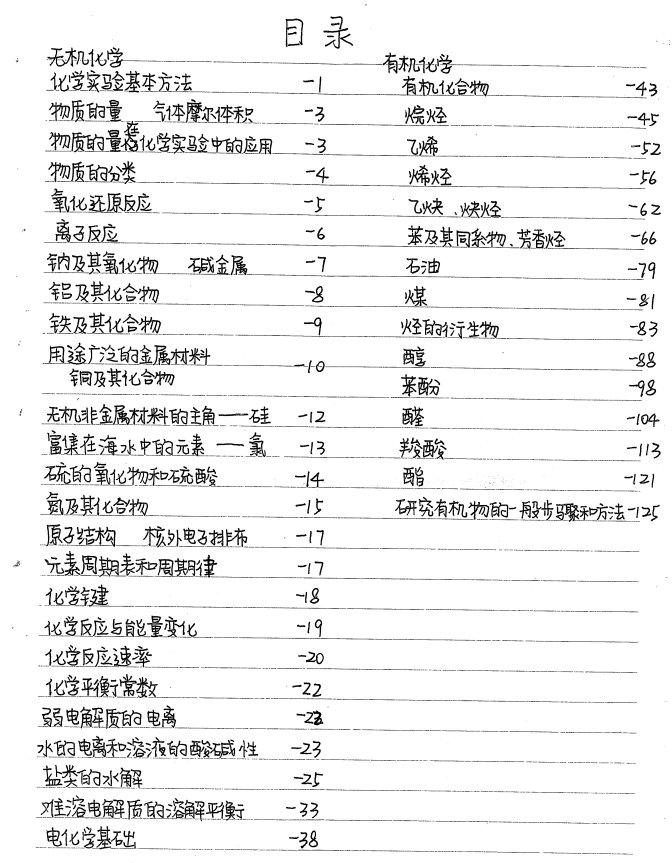 目录
无机化学
化学实验基本方法 -1
物质的量 气体摩尔体积 -3
物质的量在化学实验中的应用 -3
物质的分类 -4
氧化还原反应 -5
离子反应 -6
钠及其氧化物 碱金属 -7
铝及其化合物 -8
铁及其化合物 -9
用途广泛的金属材料 -10
铜及其化合物
无机非金属材料的主角——硅 -12
富集在海水中的元素——氯 -13
硫的氧化物和硫酸 -14
氮及其化合物 -15
原子结构 核外电子排布 -17
元素周期表和周期律 -17
化学键 -18
化学反应与能量变化 -19
化学反应速率 -20
化学平衡常数 -22
弱电解质的电离 -22
水的电离和溶液的酸碱性 -23
盐类的水解 -25
难溶电解质的溶解平衡 -33
电化学基础 -38
有机化学
有机化合物 -43
烷烃 -45
乙烯 -52
烯烃 -56
乙炔、炔烃 -62
苯及其同系物、芳香烃 -66
石油 -79
煤 -81
烃的衍生物 -83
醇 -88
苯酚 -98
醛 -104
羧酸 -113
酯 -121
研究有机物的一般步骤和方法 -125